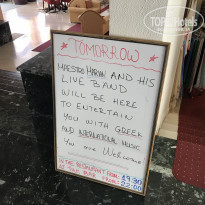 TopHotels
TOMORROW
MAESTRO HARAN AND HIS
LIVE BAND
WILL BE HERE
TO ENTERTAIN
YOU WITH GREEK
AND INTERNATIONAL MUSIC
YOU ARE Welcome
IN THE RESTAURANT FROM: 19:30
AT THE BAR FROM: 22:00